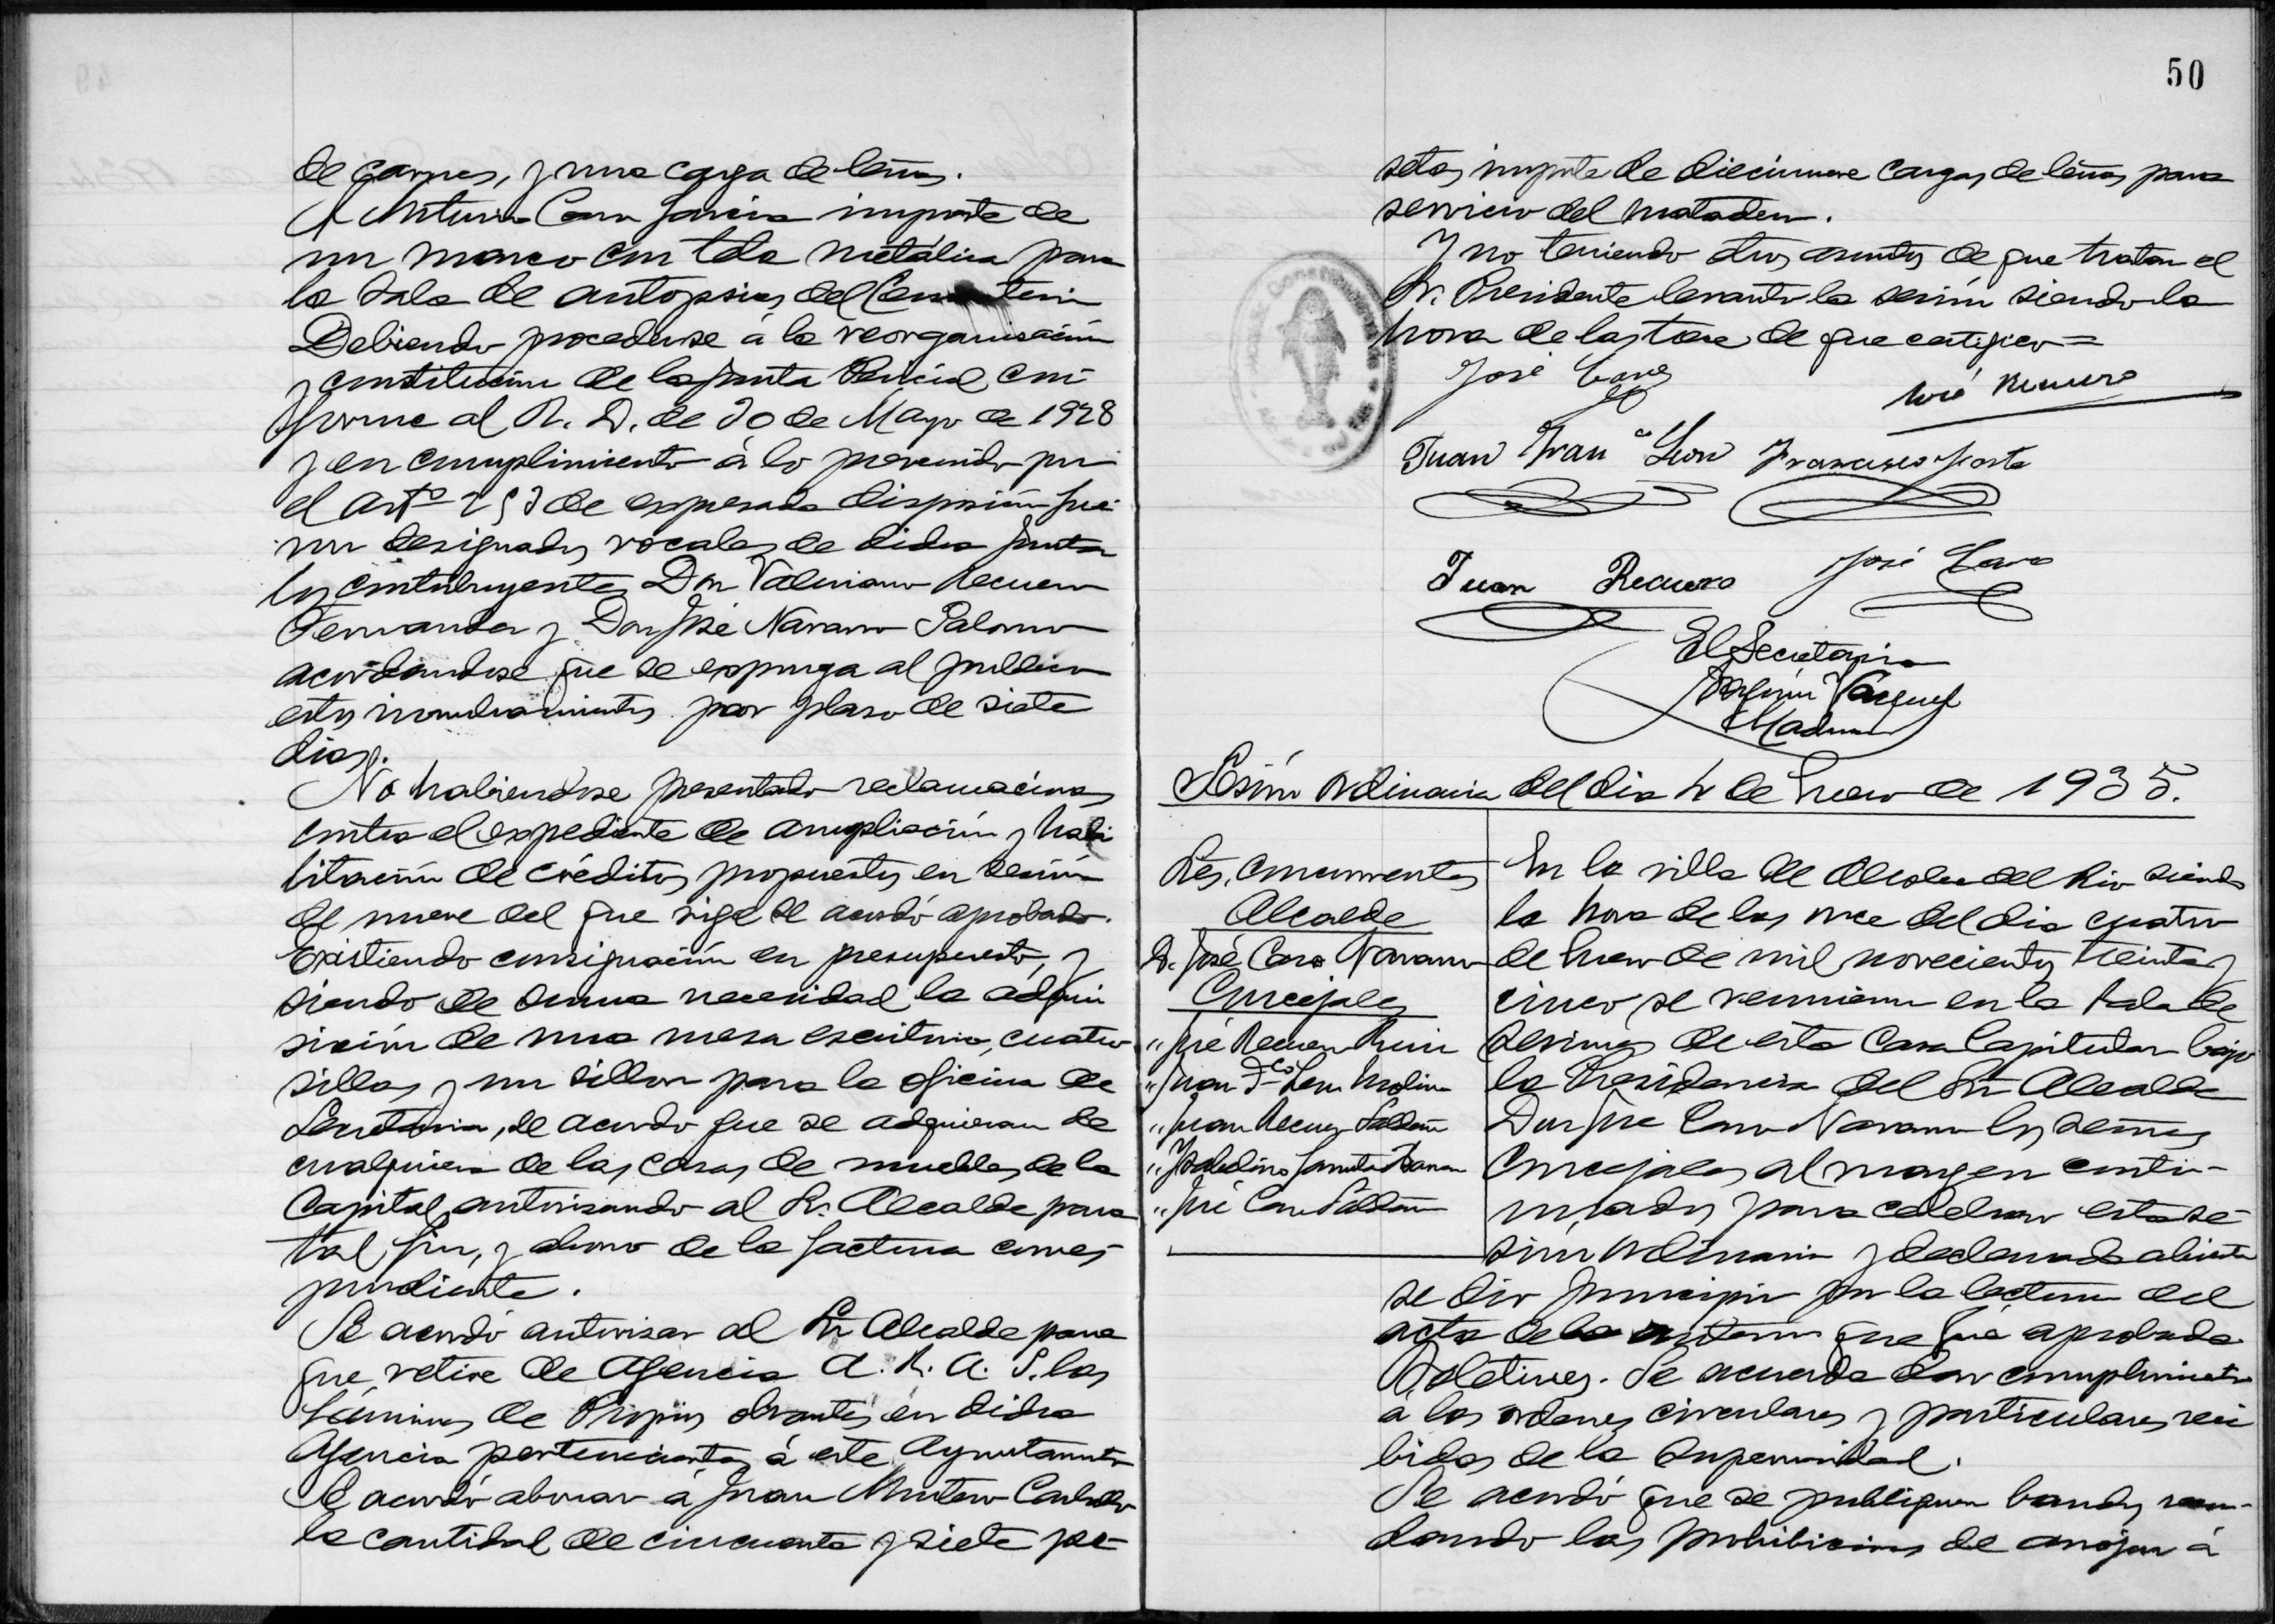 de carnes, y una carga de leñas.
A Arturo Caro Garcia importe de
un marco con tela metálica para
la Sala de autopsias del Cementerio
Debiendo procederse á la reorganización
y constitución de la Junta Pericial con
forme al R. D. de 30 de Mayo de 1928
y en cumplimiento á lo prevenido por
el artº 253 de expresada disposición fue
ron designados vocales de dicha Junta
los contribuyentes Don Valeriano Recuero
Fernandez y Don José Navarro Palomo
acordandose que se exponga al publico
estos nombramientos por plazo de siete
dias.
No habiendose presentado reclamaciones
contra el expediente de ampliación y habi
litación de créditos propuestos en sesión
de nueve del que rige se acordó aprobado.
Existiendo consignación en presupuesto, y
siendo de suma necesidad la adqui
sición de una mesa escritorio, cuatro
sillas y un sillon para la oficina de
Secretaria, se acordo que se adquieran de
cualquiera de las casas de muebles de la
Capital autorisando al Sr. Alcalde para
tal fin, y abono de la factura corres
pondiente.
Se acordó autorisar al Sr Alcalde para
que retire de Agencia A. R. A. S. las
láminas de Propios obrantes en dicha
Agencia pertenecientes á este Ayuntamiento
Se acordó abonar á Juan Montero
la cantidad de cincuenta y siete pe-
50
setas importe de diecinueve cargas de leñas para
servicio del matadero.
Y no teniendo otros asuntos de que tratar el
Sr. Presidente levantó la sesión siendo la
hora de las doce de que certifico=
José Caro
José Recuero
Juan Fran co Leon Francisco
Juan Recuero José Caro
El Secretario
Vazquez
Sesión ordinaria del dia 4 de Enero de 1935.
Sres. concurrentes
Alcalde
D. José Caro Navarro
Concejales
" José Recuero Ruiz
" Juan Fco Leon Molina
" Juan Recuero Saldaña
" José Caro Saldaña
En la villa de Alcolea del Rio siendo
la hora de las once del dia cuatro
de Enero de mil novecientos treinta y
cinco se reunieron en la Sala de
Sesiones de esta Casa Capitular bajo
la Presidencia del Sr Alcalde
Don José Caro Navarro los señores
Concejales al margen conti-
nuados para celebrar esta se-
sión ordinaria y declarada abierta
se dio principio por la lectura del
acta de la anterior que fue aprobada.
Boletines. Se acuerda dar cumplimiento
á las ordenes circulares y particulares reci
bidas de la Superioridad.
Se acordó que se publiquen bandos recor-
dando las prohibiciones de arrojar á